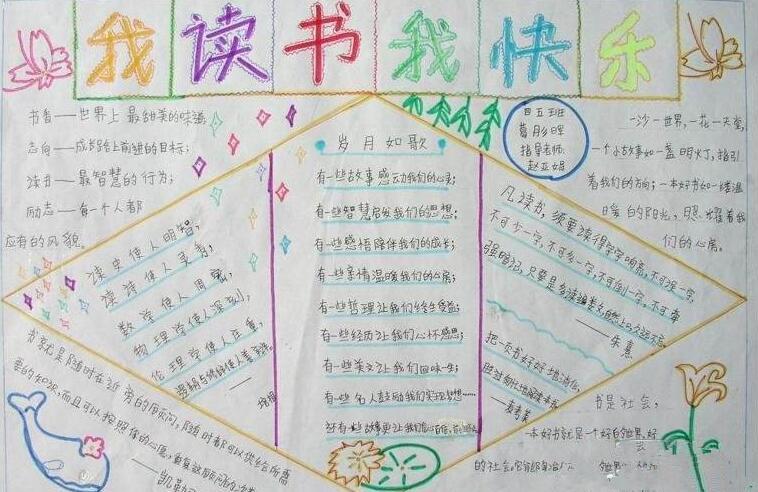 我读书我快乐
书香——世界上最甜美的味道
志向——成长路上前进的目标;
读书——最智慧的行为;
励志——每一个人都
应有的风貌。
读史使人明智,
读诗使人灵秀,
数学使人周密,
物理学使人深刻,
伦理学使人庄重,
——培根
书就是随时在近旁的顾问,随时都可以供给你所需
要的知识,而且可以按照你的心愿,重复这顾问的次数
——凯勒
岁月如歌
有一些故事感动我们的心灵;
有一些智慧启发我们的思想;
有一些感悟陪伴我们的成长;
有一些亲情温暖我们的心房;
有一些哲理让我们终生受益;
有一些经历让我们心怀感恩;
有一些美文让我们回味一生;
有一些名人鼓励我们实现梦想……
还有一些故事更让我们
四五班
葛彤晖
指导老师:
赵亚娟
一沙一世界,一花一天堂,
一个小故事如一盏明灯,指引
着我们的方向;一本好书如一缕温
暖的阳光,照耀着我
们的心房。
凡读书,须要读得字字响亮,不可误一字,
不可少一字,不可多一字,不可倒一字,不可牵
强暗记,只要是多诵遍数,自然上口,久远不忘。
——朱熹
把一页书好好地消化,
胜过匆忙地阅读一本书
——麦考莱
书是社会,
一本好书就是一个好的世界,好
的社会。